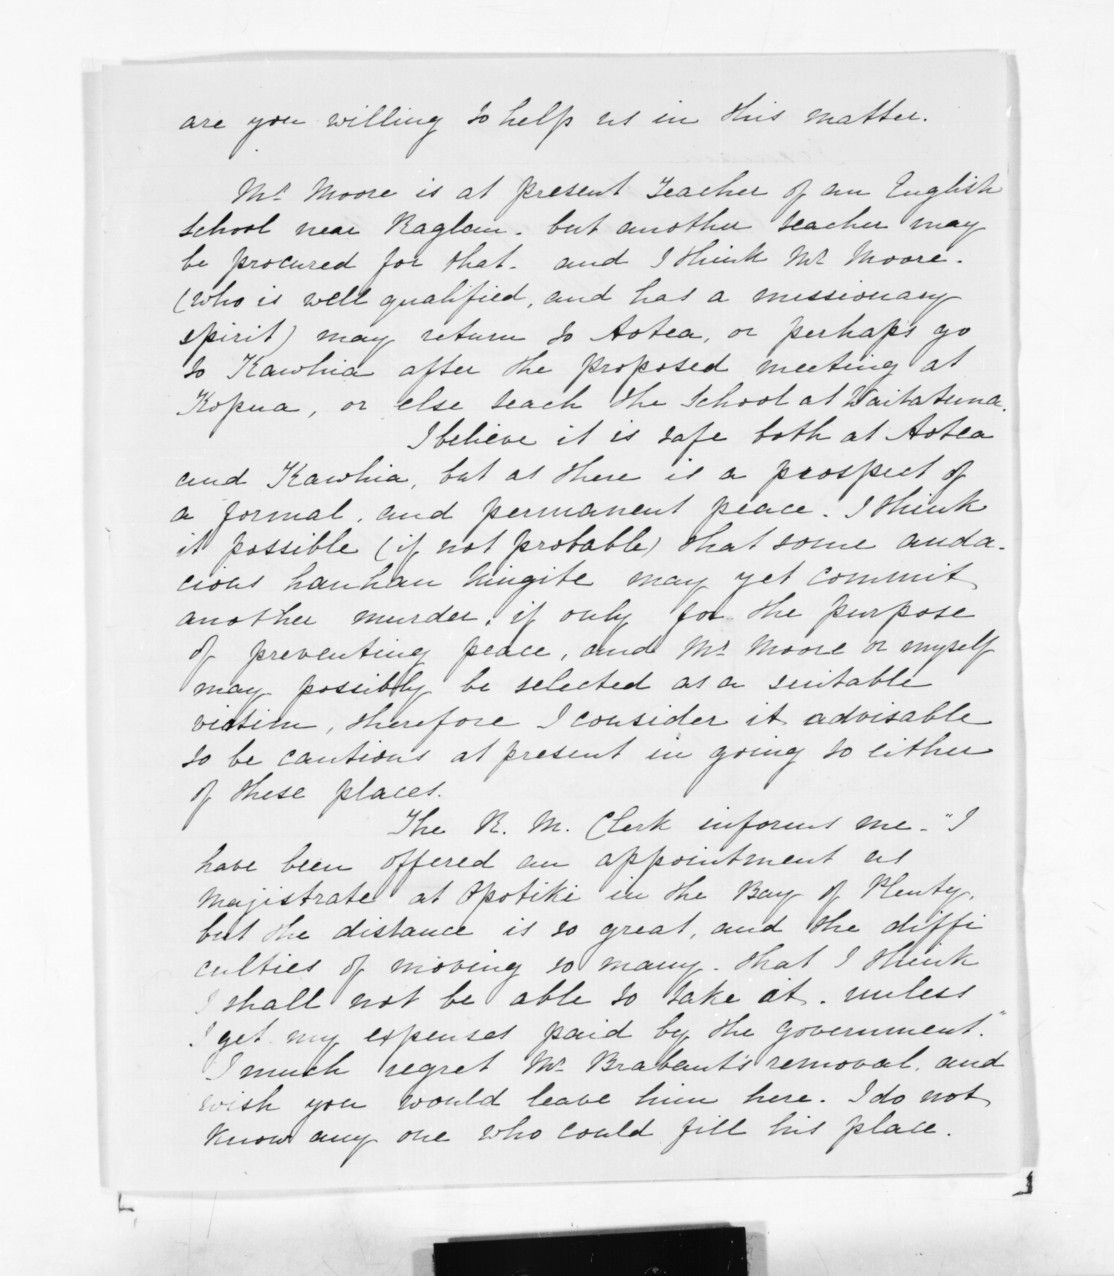 are you willing to help us in this matter.
Mr. Moore is at present Teacher of an English
school near Raglan. but another teacher may
be procured for that. and I think Mr. Moore.
(who is well qualified, and has a missionary
spirit) may return to Aotea, or perhaps go
to Kawhia after the proposed meeting at
Kopua, or else teach the School at Waitatuna.
I believe it is safe both at Aotea
and Kawhia, but as there is a prospect of
a formal, and permanent peace. I think
it possible (if not probable) that some auda-
cious hauhau kingite may yet commit
another murder, if only for the purpose
of preventing peace, and Mr. Moore or myself
may possibly be selected as a suitable
victim, therefore I consider it advisable
to be cautious at present in going to either
of these places.
The R. M. Clerk informs me. "I
have been offered an appointment as
Majistrate at Opotiki in the Bay of Plenty,
but the distance is so great, and the diffi
culties of moving so many. that I think
I shall not be able to take it. unless
I get my expenses paid by the Government."
I much regret Mr. Brabant's removal, and
wish you would leave him here. I do not
know any one who could fill his place.